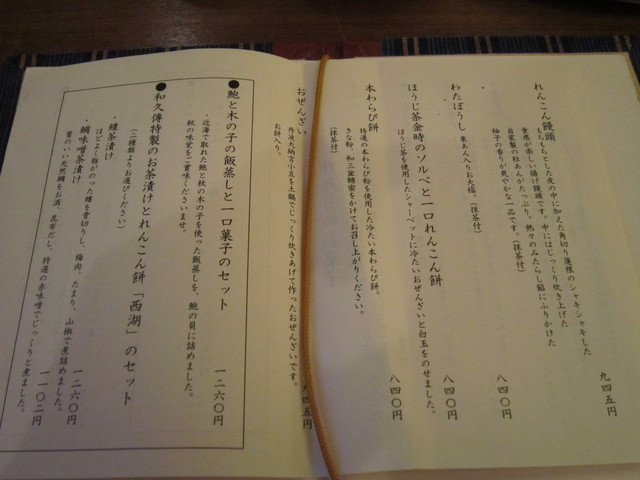 れんこん饅頭
もちもちとした皮の中に加えた角切り蓮根のシャキシャキした
食感が楽しい揚げ饅頭です。中にはじっくり炊き上げた
自家製の粒あんがたっぷり。熱々のみたらし餡にふりかけた
柚子の香りが爽やかな一品です。(抹茶付)
九四五円
わたぼうし 栗あん入りお大福。(抹茶付)
八四〇円
ほうじ茶金時のソルベと一口れんこん餅
ほうじ茶を使用したシャーベットに冷たいおぜんざいと白玉をのせました。
八四〇円
本わらび餅
特選の本わらび粉を使用した冷たい本わらび餅。
きな粉、和三盆糖蜜をかけてお召し上がりください。
(抹茶付)
八四〇円
おぜんざい
丹波大納言小豆を土鍋でじっくり炊きあげて作ったおぜんざいです。
お餅入り。
(抹茶付)
四五円
●鮑と木の子の飯蒸しと一口菓子のセット
・近海で取れた鮑と秋の木の子を使った飯蒸しを、鮑の貝に詰めました。
秋の味覚をご賞味くださいませ。
一二六〇円
●和久傳特製のお茶漬けとれんこん餅「西湖」のセット
(二種類よりお選びください)
・鱧茶漬け
ほどよく脂がのった鱧を骨切りし、梅肉、たまり、山椒で煮詰めました。
一二六〇円
・鯛味噌茶漬け
質のいい天然鯛をお酒、昆布だし、特選の赤味噌でじっくりと煮ました。
一一〇二円